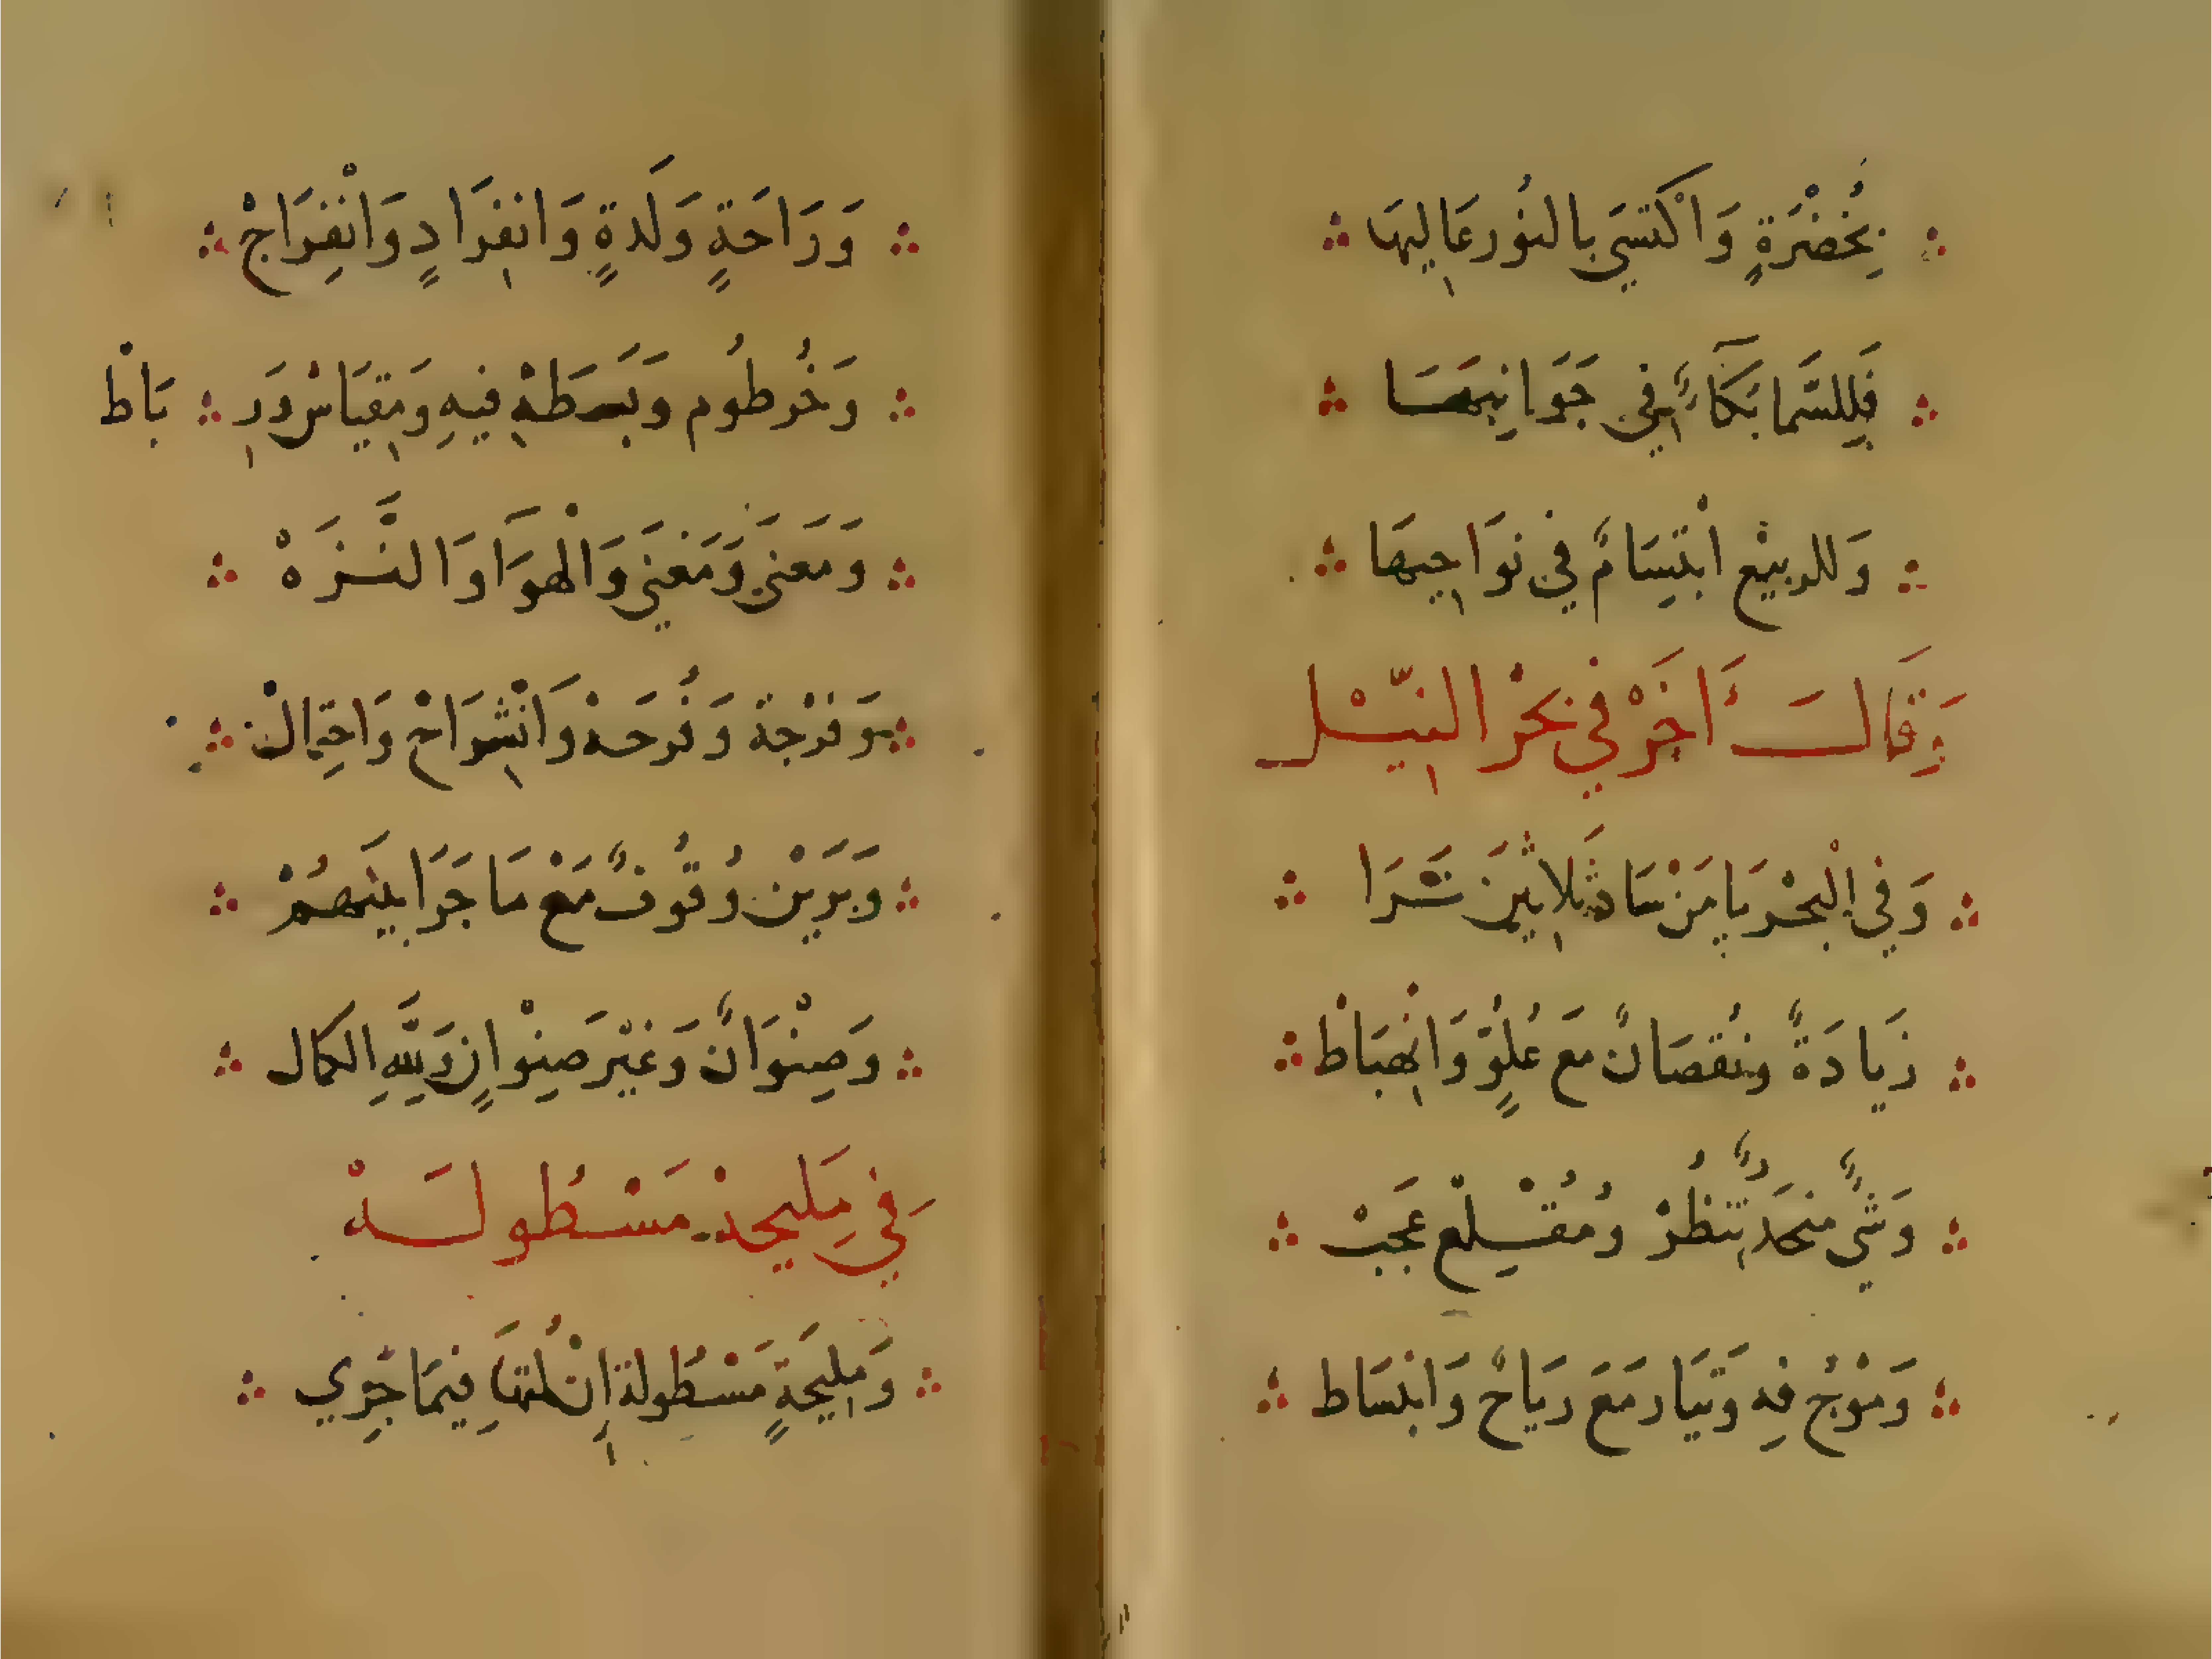 بِخُضْرَةٍ وَاكْتَسَى بِالنُورِ عَالِيهَا
فَلِلسَّمَا بَكَاءٌ فِي جَوَانِبِهَا
وَلِلرَبِيْعِ ابْتِسَامٌ فِي نَوَاحِيهَا
وَقَالَ اَخَرْ فِي بَحْرِ النِيْل
وَفِي الْبَحْرِ يَا مَنْ سَاد ثَلاثِيْنَ تَرَا
زِيَادَةٌ وَنُقصَانٌ مَع عُلُوٍّ وَانْهِبَاطْ
وَشَيٌّ مُنْحَدِرٌ تَنْظُرْ وُمُقْلِعْ عَجَبْ
وَمَوْجُ فِهِ وَتَيَار مَعَ رِيَاحٌ وَانْبِسَاط
وَرَاحَةٍ وَلَذةٍ وَانفِرَادٍ وَانْفِرَاجْ
وَخُرطُوم وَبَسَطَهْ فِيهِ وَمِقيَاسْ وَرِبَاطْ
وَمَعنَى وَمَغنَى وَالْهوَا وَالنَّزَهْ
وَفُرْجَة وَفُرَحَهْ وَانْشِرَاحْ وَاحْتِمَالْ
وَبَرَيْن وُقُوفٌ مَعْ مَا جَرَا بَيْنَهُمْ
وَصِنْوَانٌ وَغَيْر صِنْوَانٍ وَلِلَّهِ الكَمَال
فِي مَلِيحِهْ مَسْطُولَهْ
وَمَلِيحَةٍ مَسْطُولة اِنْ لُمْتَهَا فِيمَا جَرِي